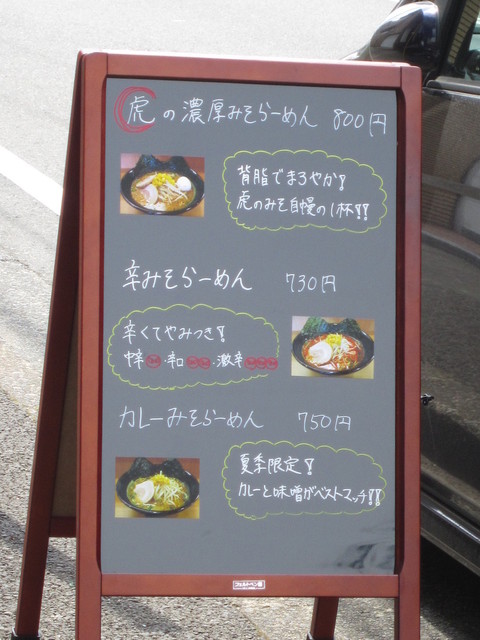 虎の濃厚みそらーめん 800円
背脂でまろやか!
虎のみそ自慢の1杯!!
辛みそらーめん 730円
辛くてやみつき!
中辛・辛口・激辛
カレーみそらーめん 750円
夏季限定!
カレーと味噌がベストマッチ!!